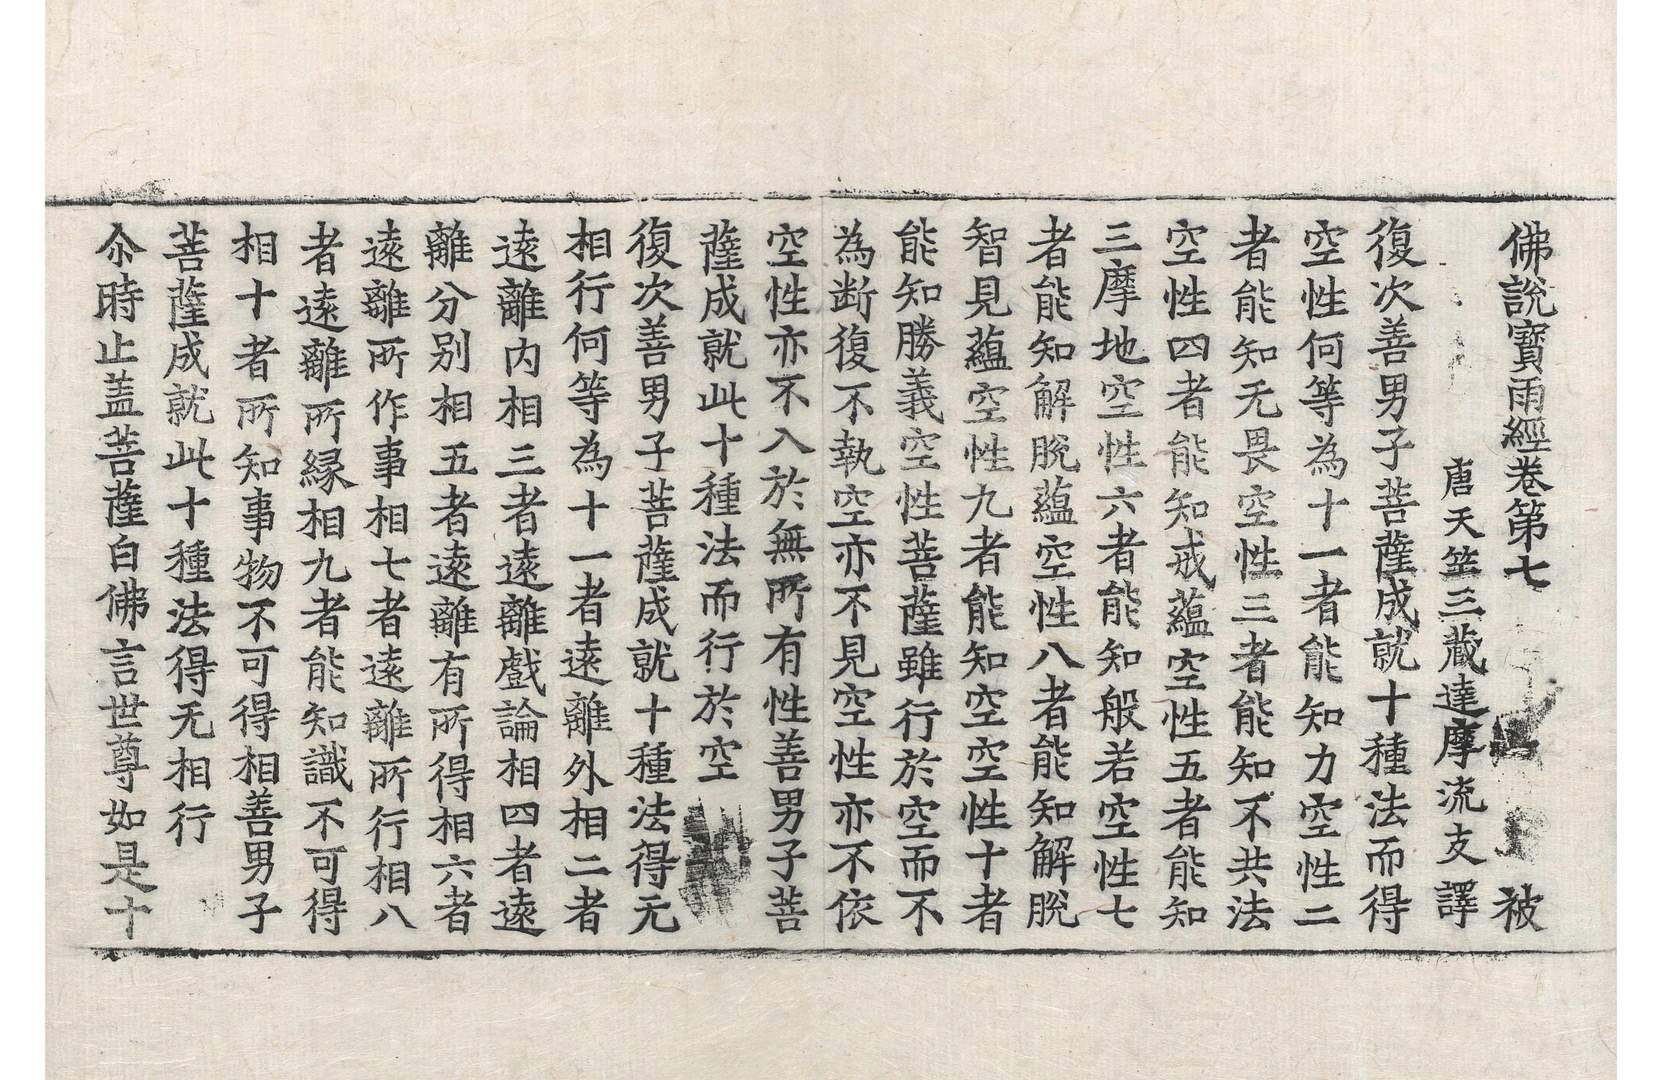 佛說寶雨經卷第七 被
唐天竺三藏達摩流支 譯
復次善男子菩薩成就十種法而得
空性何等為十一者能知力空性二
者能知无畏空性三者能知不共法
空性四者能知戒蘊空性五者能知
三摩地空性六者能知般若空性七
者能知解脫蘊空性八者能知解脫
智見蘊空性九者能知空空性十者
能知勝義空性菩薩雖行於空而不
為断復不執空亦不見空性亦不依
空性亦不入於無所有性善男子菩
薩成就此十種法而行於空
復次善男子菩薩成就十種法得无
相行何等為十一者遠離外相二者
遠離内相三者遠離戲論相四者遠
離分別相五者遠離有所得相六者
遠離所作事相七者遠離所行相八
者遠離所縁相九者能知識不可得
相十者所知事物不可得相善男子
菩薩成就此十種法得无相行
尒時止盖菩薩白佛言世尊如是十